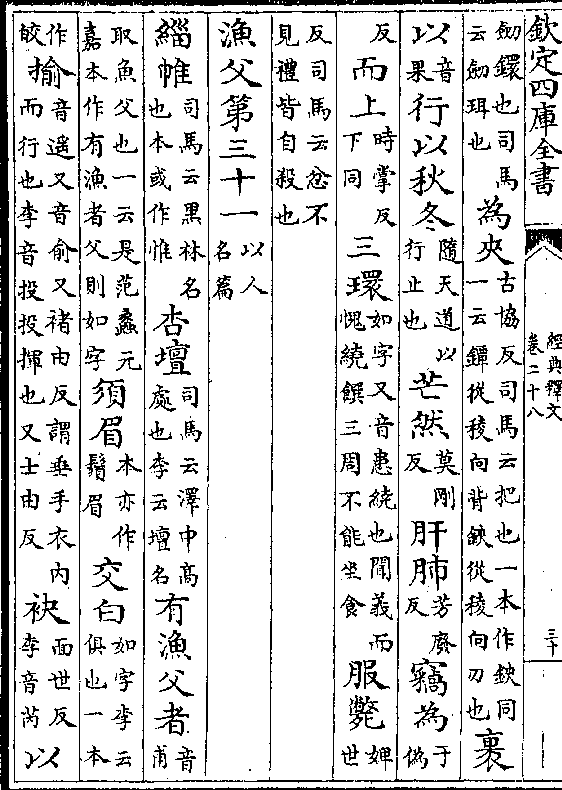 欽定四庫全書
經典釋文
卷二十八
三十
劒鐶也司馬云劒珥也為夾古協反司馬云把也一本作鋏同一云鐔從稜向背鋏從稜向刃也裹
以音果行以秋冬隨天道以行止也芒然莫剛反肝肺芳廢反竊為于偽
反而上時掌反下同三環如字又音患繞也聞義而愧繞饌三周不能坐食服斃婢世
反司馬云忿不見禮皆自殺也
漁父第三十一以人名篇
緇帷司馬云黑林名也本或作惟杏壇司馬云澤中高處也李云壇名有漁父者音甫
取魚父也一云是范蠡元嘉本作有漁者父則如字須眉本亦作鬚眉交白如字李云俱也一本
作皎揄音遥又音俞又褚由反謂垂手衣内而行也李音投投揮也又士由反袂面世反李音芮以